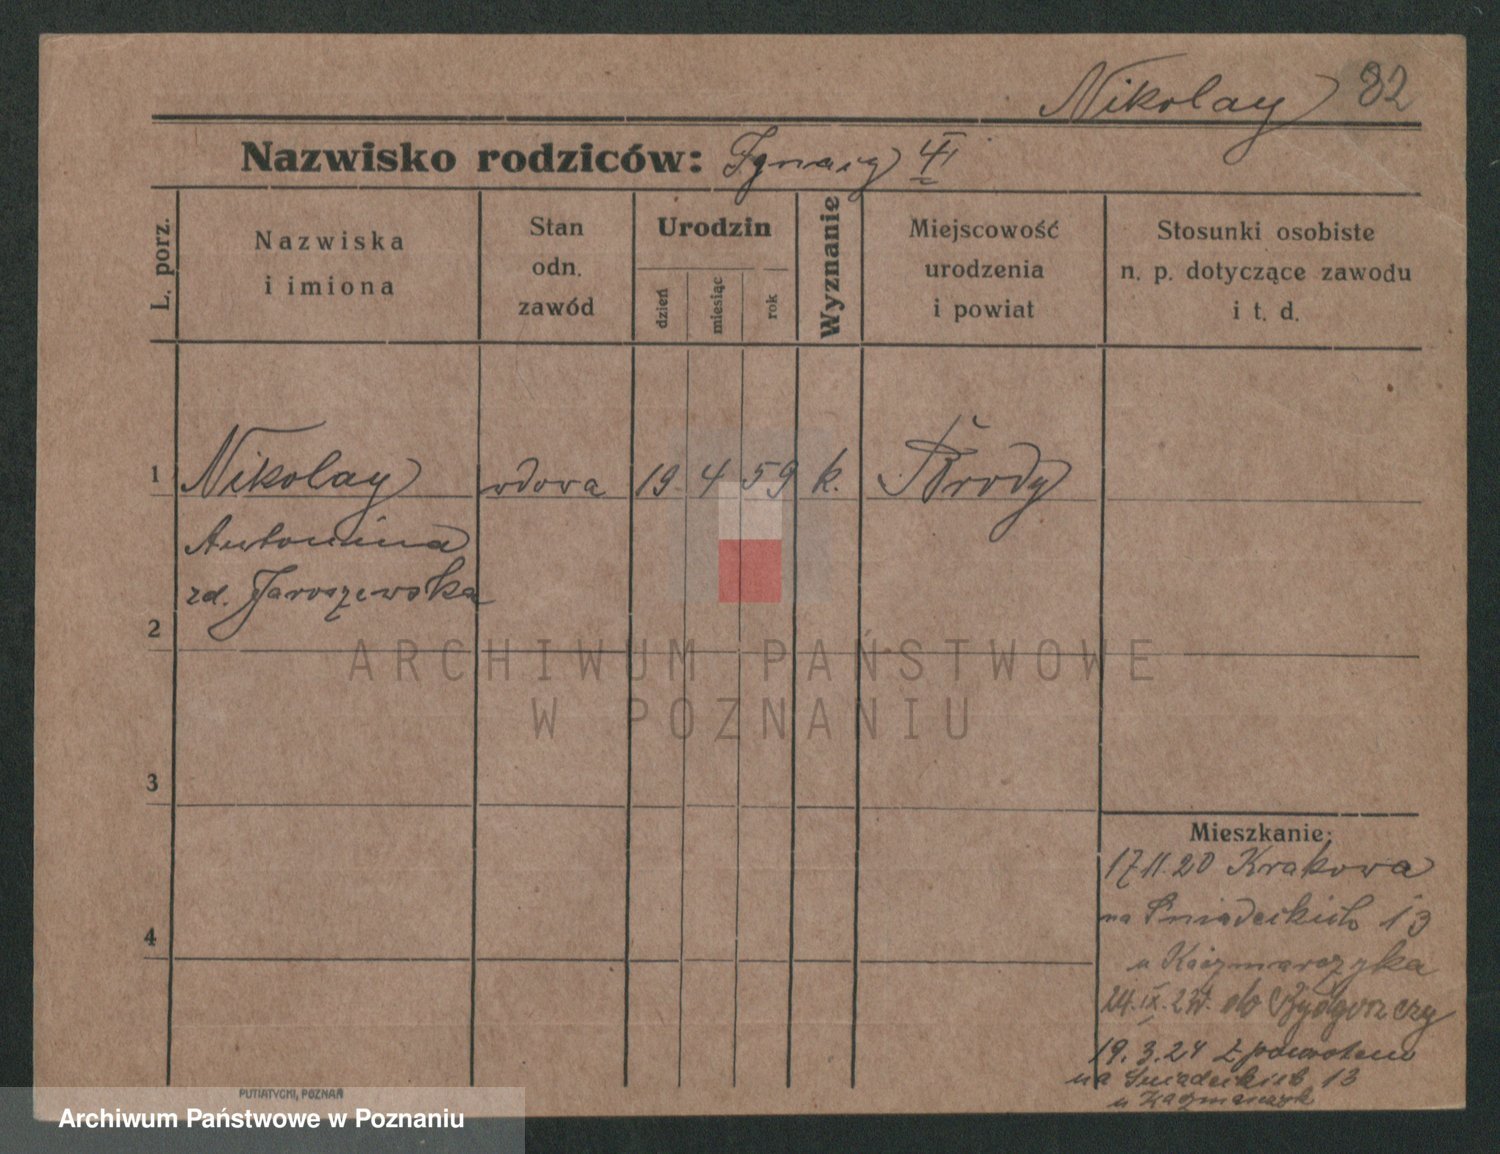 Nikolay 82
Nazwisko rodziców: Ignacy III
L. porz.
Nazwiska
i imiona
Stan
odn.
zawód
Urodzin
dzień
miesiąc
rok
Wyznanie
Miejscowość
urodzenia
i powiat
Stosunki osobiste
n. p. dotyczące zawodu
i t. d.
1 Nikolay wdowa 19 4 59 k. Brody
Antonina
zd. Jaroszewska
2
3
4
ARCHIWUM PAŃSTWOWE
W POZNANIU
Mieszkanie:
17.11.20 Krakowa
na Śniadeckich 13
u Kaczmarzyka
24.IX. do Bydgoszczy
19.3.24 z powrotem
na Śniadeckich 13
u Kaczmarczyk
PUTIATYCKI, POZNAŃ
Archiwum Państwowe w Poznaniu